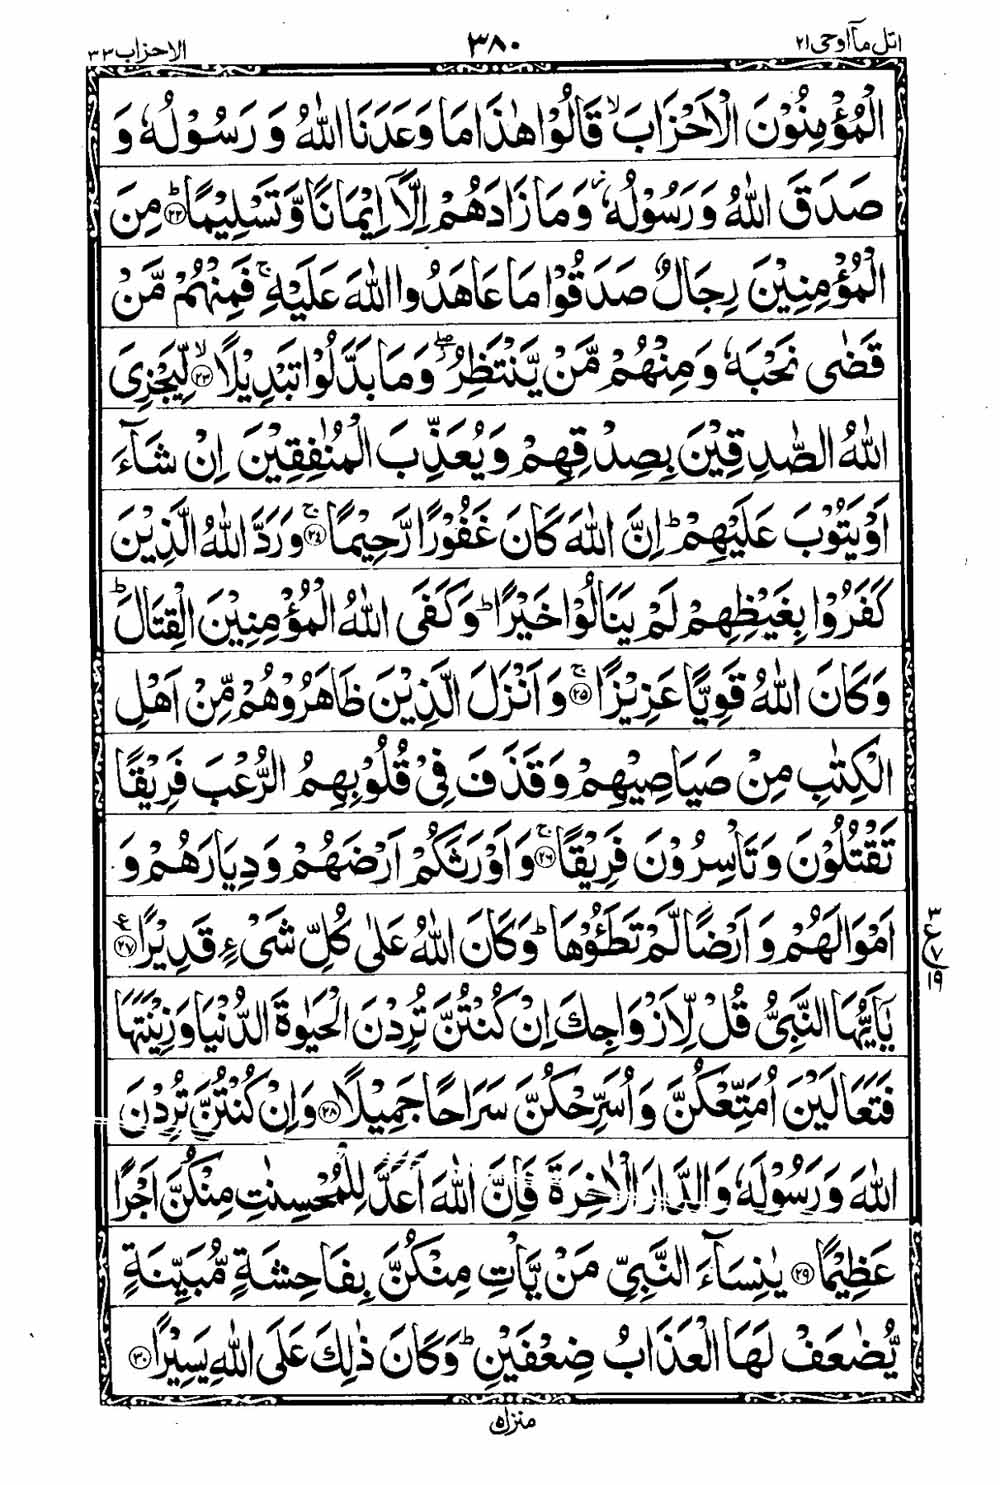 اتل مآ اوحی ٢١ ٣٨٠ الاحزاب ٣٣
الْمُؤْمِنُوْنَ الْاَحْزَابَ ۙ قَالُوْا هٰذَا مَا وَعَدَنَا اللّٰهُ وَ رَسُوْلُهٗ وَ
صَدَقَ اللّٰهُ وَ رَسُوْلُهٗ ؗ وَ مَا زَادَهُمْ اِلَّاۤ اِیْمَانًا وَّ تَسْلِیْمًا ؕ ﴿٢٢﴾ مِنَ
الْمُؤْمِنِیْنَ رِجَالٌ صَدَقُوْا مَا عَاهَدُوا اللّٰهَ عَلَیْهِ ۚ فَمِنْهُمْ مَّنْ
قَضٰی نَحْبَهٗ وَ مِنْهُمْ مَّنْ یَّنْتَظِرُ ۖؗ وَ مَا بَدَّلُوْا تَبْدِیْلًا ۙ ﴿٢٣﴾ لِّیَجْزِیَ
اللّٰهُ الصّٰدِقِیْنَ بِصِدْقِهِمْ وَ یُعَذِّبَ الْمُنٰفِقِیْنَ اِنْ شَآءَ
اَوْ یَتُوْبَ عَلَیْهِمْ ؕ اِنَّ اللّٰهَ كَانَ غَفُوْرًا رَّحِیْمًا ۚ ﴿٢٤﴾ وَ رَدَّ اللّٰهُ الَّذِیْنَ
كَفَرُوْا بِغَیْظِهِمْ لَمْ یَنَالُوْا خَیْرًا ؕ وَ كَفَی اللّٰهُ الْمُؤْمِنِیْنَ الْقِتَالَ ؕ
وَ كَانَ اللّٰهُ قَوِیًّا عَزِیْزًا ۚ ﴿٢٥﴾ وَ اَنْزَلَ الَّذِیْنَ ظَاهَرُوْهُمْ مِّنْ اَهْلِ
الْكِتٰبِ مِنْ صَیَاصِیْهِمْ وَ قَذَفَ فِیْ قُلُوْبِهِمُ الرُّعْبَ فَرِیْقًا
تَقْتُلُوْنَ وَ تَاْسِرُوْنَ فَرِیْقًا ۚ ﴿٢٦﴾ وَ اَوْرَثَكُمْ اَرْضَهُمْ وَ دِیَارَهُمْ وَ
اَمْوَالَهُمْ وَ اَرْضًا لَّمْ تَطَـُٔوْهَا ؕ وَ كَانَ اللّٰهُ عَلٰی كُلِّ شَیْءٍ قَدِیْرًا ﴿٢٧﴾ ع
٣
ع ٧
١٩
یٰۤاَیُّهَا النَّبِیُّ قُلْ لِّاَزْوَاجِكَ اِنْ كُنْتُنَّ تُرِدْنَ الْحَیٰوةَ الدُّنْیَا وَ زِیْنَتَهَا
فَتَعَالَیْنَ اُمَتِّعْكُنَّ وَ اُسَرِّحْكُنَّ سَرَاحًا جَمِیْلًا ﴿٢٨﴾ وَ اِنْ كُنْتُنَّ تُرِدْنَ
اللّٰهَ وَ رَسُوْلَهٗ وَ الدَّارَ الْاٰخِرَةَ فَاِنَّ اللّٰهَ اَعَدَّ لِلْمُحْسِنٰتِ مِنْكُنَّ اَجْرًا
عَظِیْمًا ﴿٢٩﴾ یٰنِسَآءَ النَّبِیِّ مَنْ یَّاْتِ مِنْكُنَّ بِفَاحِشَةٍ مُّبَیِّنَةٍ
یُّضٰعَفْ لَهَا الْعَذَابُ ضِعْفَیْنِ ؕ وَ كَانَ ذٰلِكَ عَلَی اللّٰهِ یَسِیْرًا ﴿٣٠﴾
منزل ٥